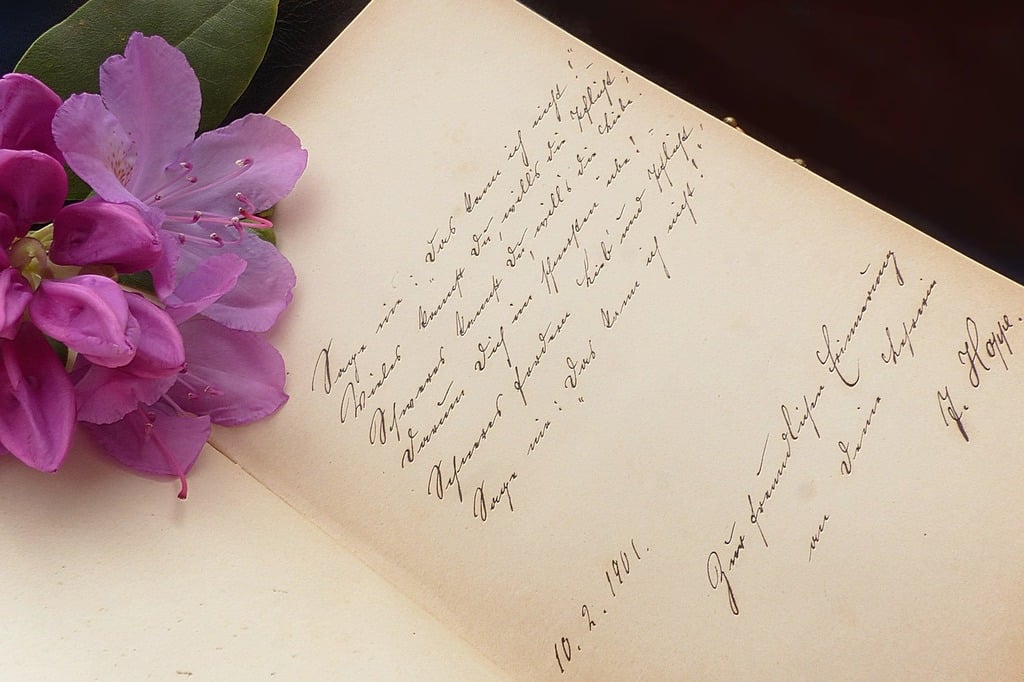 Sage nie: „Das kann ich nicht“!
Vieles kannst Du, will's die Pflicht!
Schweres kannst Du, will's die Liebe.
Darum Dich im schweren übe!
Schweres fordern Lieb' und Pflicht,
Sage nie: „Das kann ich nicht!“
Zur freundlichen Erinnerung
an Deine
J. Hoppe.
10. 2. 1901.